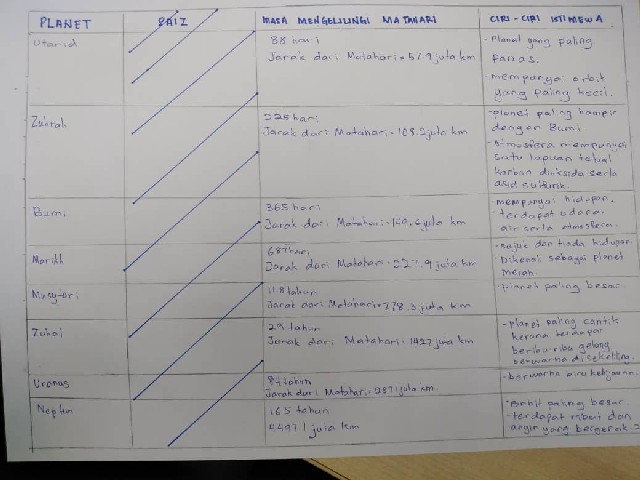 PLANET SAIZ MASA MENGELILINGI MATAHARI CIRI-CIRI ISTIMEWA
Utarid
88 hari
Jarak dari Matahari = 57.9 juta km
-Planet yang paling
panas.
-mempunyai orbit
yang paling kecil.
Zuhrah
225 hari
Jarak dari Matahari = 108.2 juta km
-planet paling hampir
dengan Bumi
-Atmosfera mempunyai
satu lapisan tebal
karbon dioksida serta
asid sulfurik.
Bumi
365 hari
Jarak dari Matahari = juta km
-mempunyai hidupan.
-terdapat udara,
air serta atmosfera.
Marikh
687 hari
Jarak dari Matahari = 227.9 juta km
-sejuk dan tiada hidupan.
Dikenali sebagai planet
merah.
Musytari
tahun
Jarak dari Matahari = 778.3 juta km
-planet paling besar.
Zuhal
29 tahun
Jarak dari Matahari = 1427 juta km
-planet paling cantik
kerana terdapat
beribu-ribu gelang
berwarna di sekeliling.
Uranus
84 tahun
Jarak dari Matahari = 2871 juta km.
-berwarna biru kehijauan.
Neptun
165 tahun
4497.1 juta km
-Orbit paling besar.
-terdapat ribut dan
angin yang bergerak